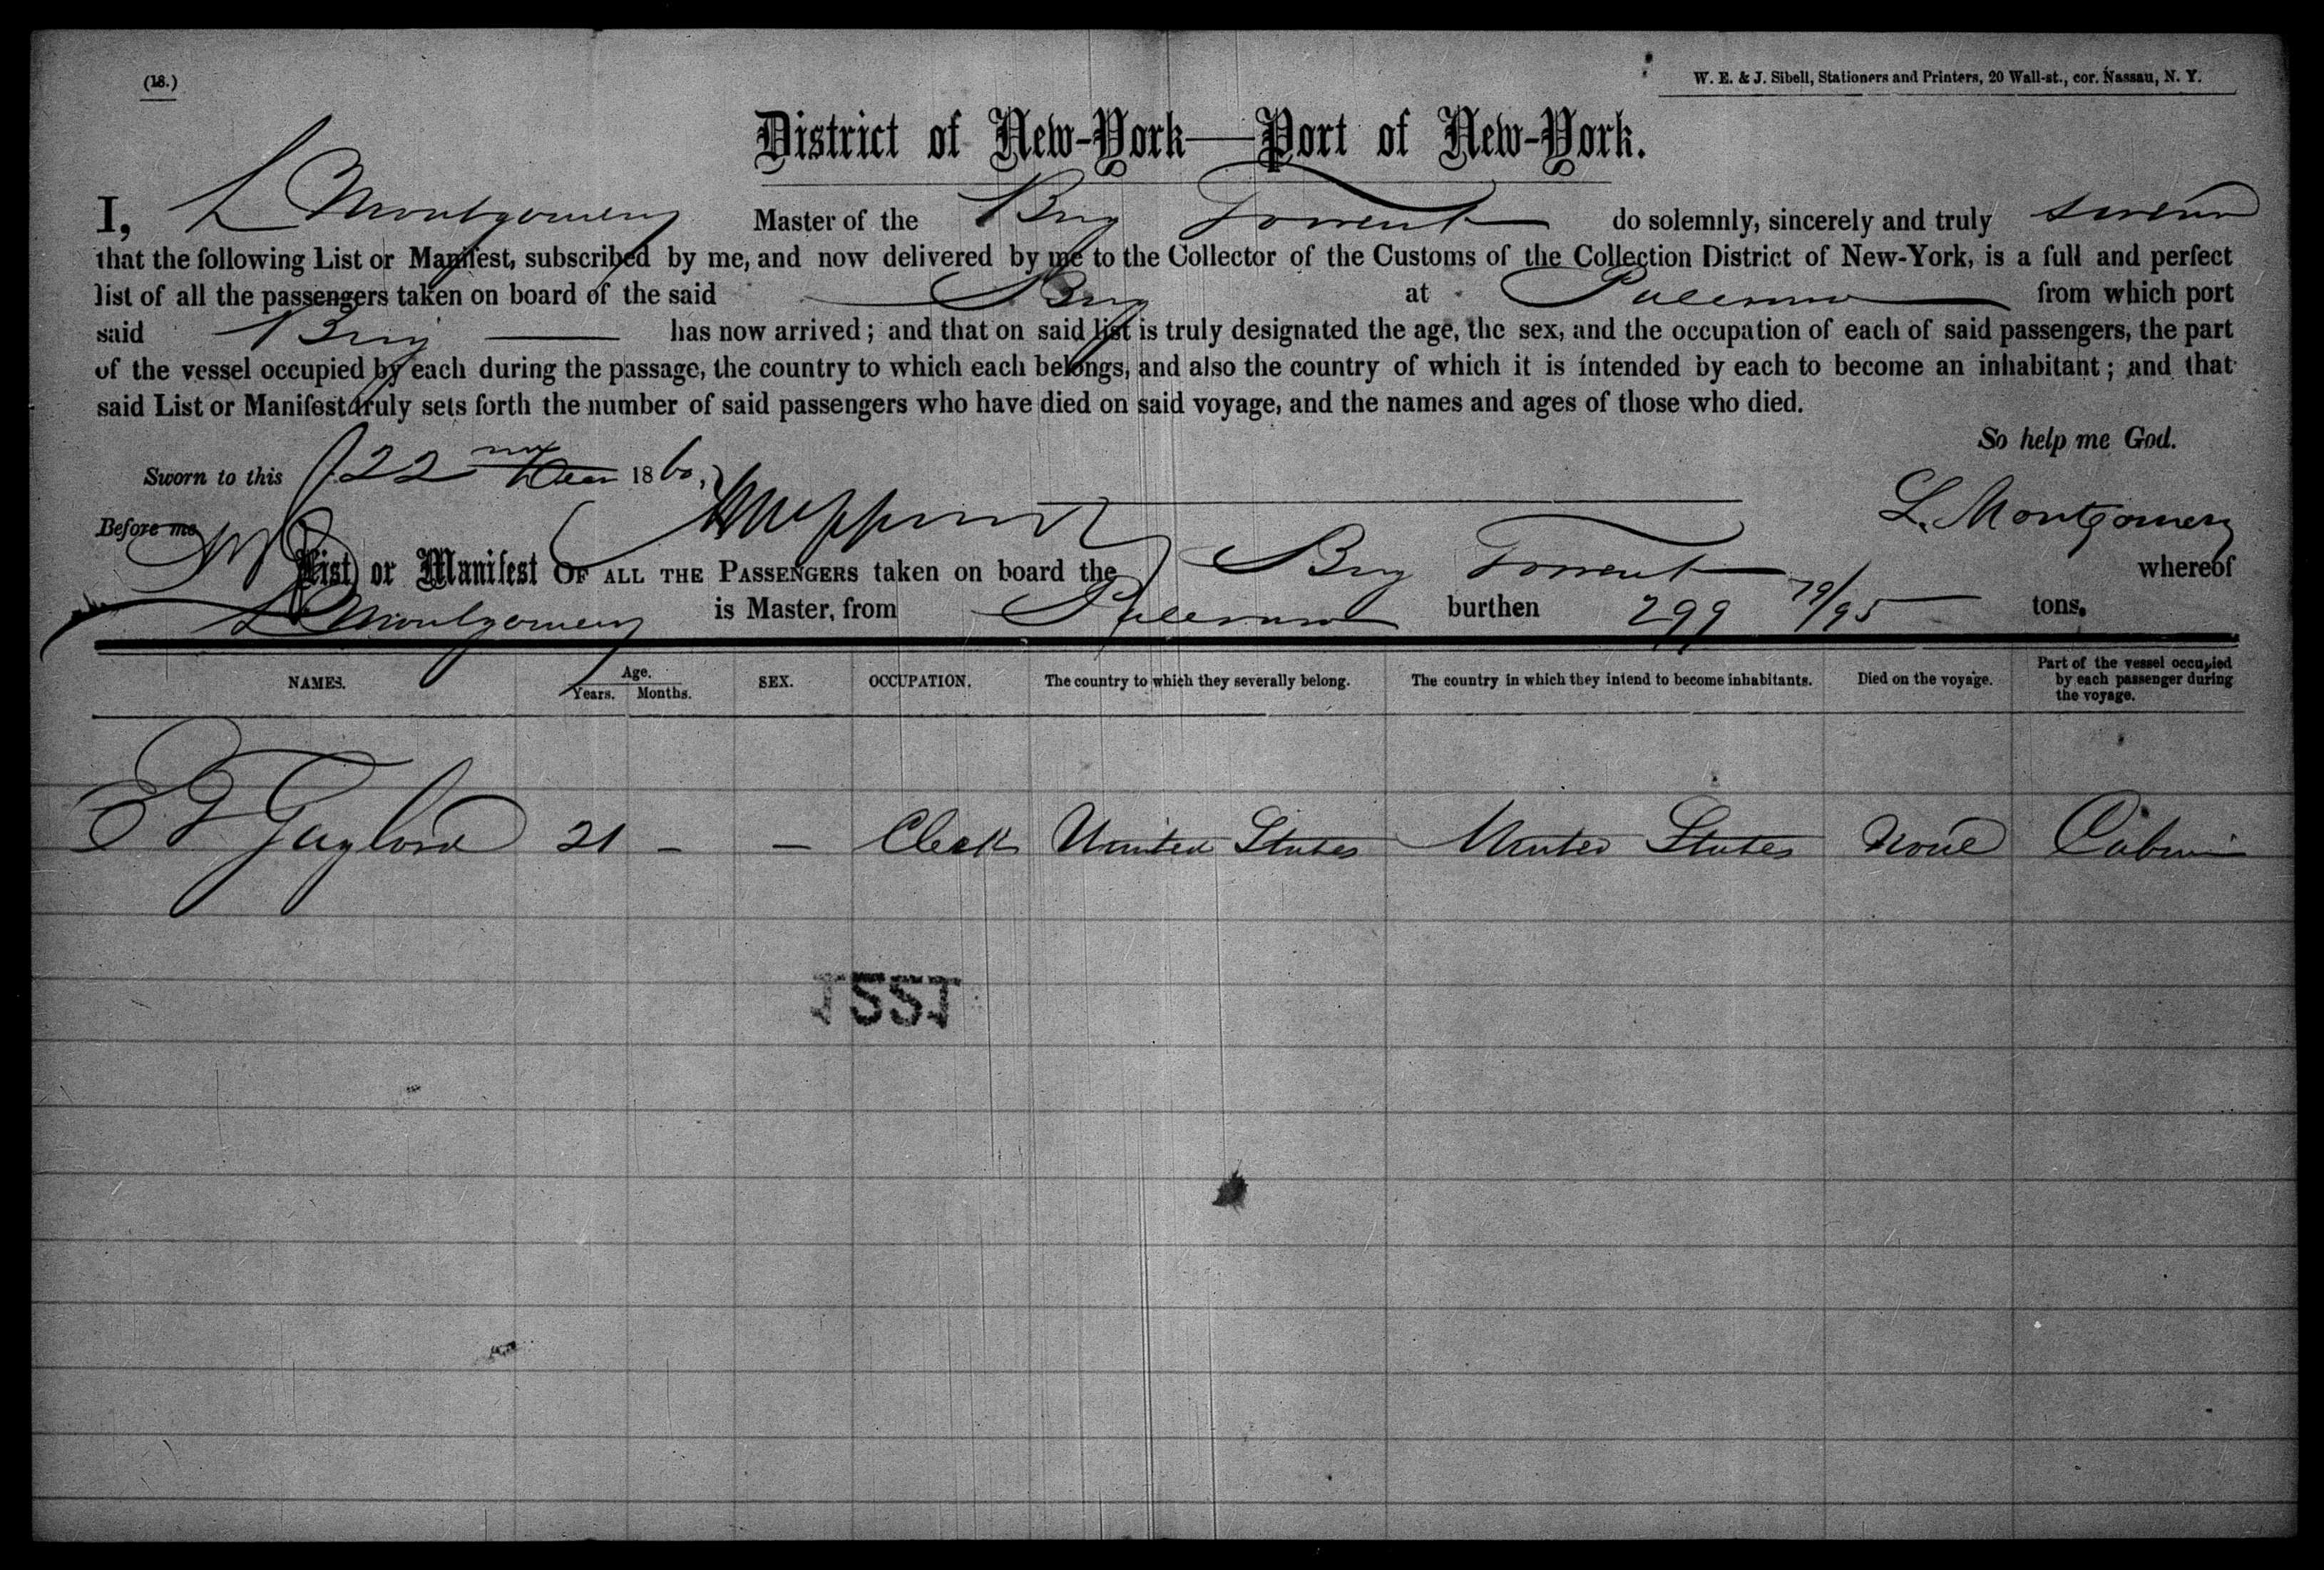 (18.)
W. E. & J. Sibell, Stationers and Printers, 20 Wall-st., cor. Nassau, N. Y.
District of New-York—Port of New-York.
I, L Montgomery Master of the Brig Torrent do solemnly, sincerely and truly swear
that the following List or Manifest, subscribed by me, and now delivered by me to the Collector of the Customs of the Collection District of New-York, is a full and perfect
list of all the passengers taken on board of the said Brig at Palermo from which port
said Brig has now arrived; and that on said list is truly designated the age, the sex, and the occupation of each of said passengers, the part
of the vessel occupied by each during the passage, the country to which each belongs, and also the country of which it is intended by each to become an inhabitant; and that
said List or Manifest truly sets forth the number of said passengers who have died on said voyage, and the names and ages of those who died.
So help me God.
Sworn to this 22nd Decr 1860,
L. Montgomery
Before me
List or Manifest OF ALL THE PASSENGERS taken on board the Brig Torrent whereof
L Montgomery is Master, from Palermo burthen 299 79/95 tons.
NAMES. Age. Years. Months. SEX. OCCUPATION. The country to which they severally belong. The country in which they intend to become inhabitants. Died on the voyage. Part of the vessel occupied by each passenger during the voyage.
Gaylord 21 - - Clerk United States United States None Cabin
1551